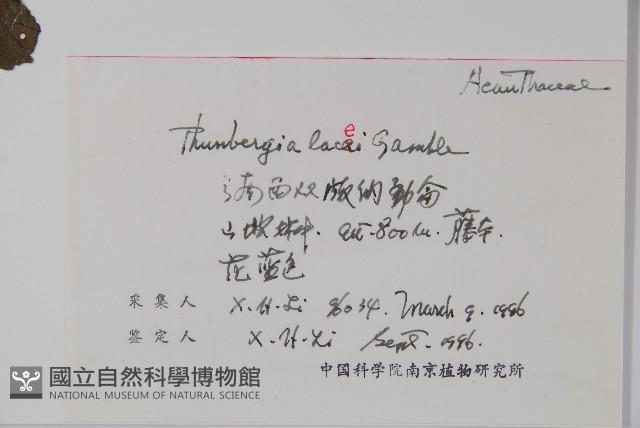 Acanthaceae
Thunbergia lacei Gamble
e
滇南西双版纳勐仑
山坡林中. alt. 800m. 藤本.
花蓝色
采集人 X.H.Li 96034. March 9. 1996
鉴定人 X.H.Li Sept. 1996.
中国科学院南京植物研究所
國立自然科學博物館
NATIONAL MUSEUM OF NATURAL SCIENCE